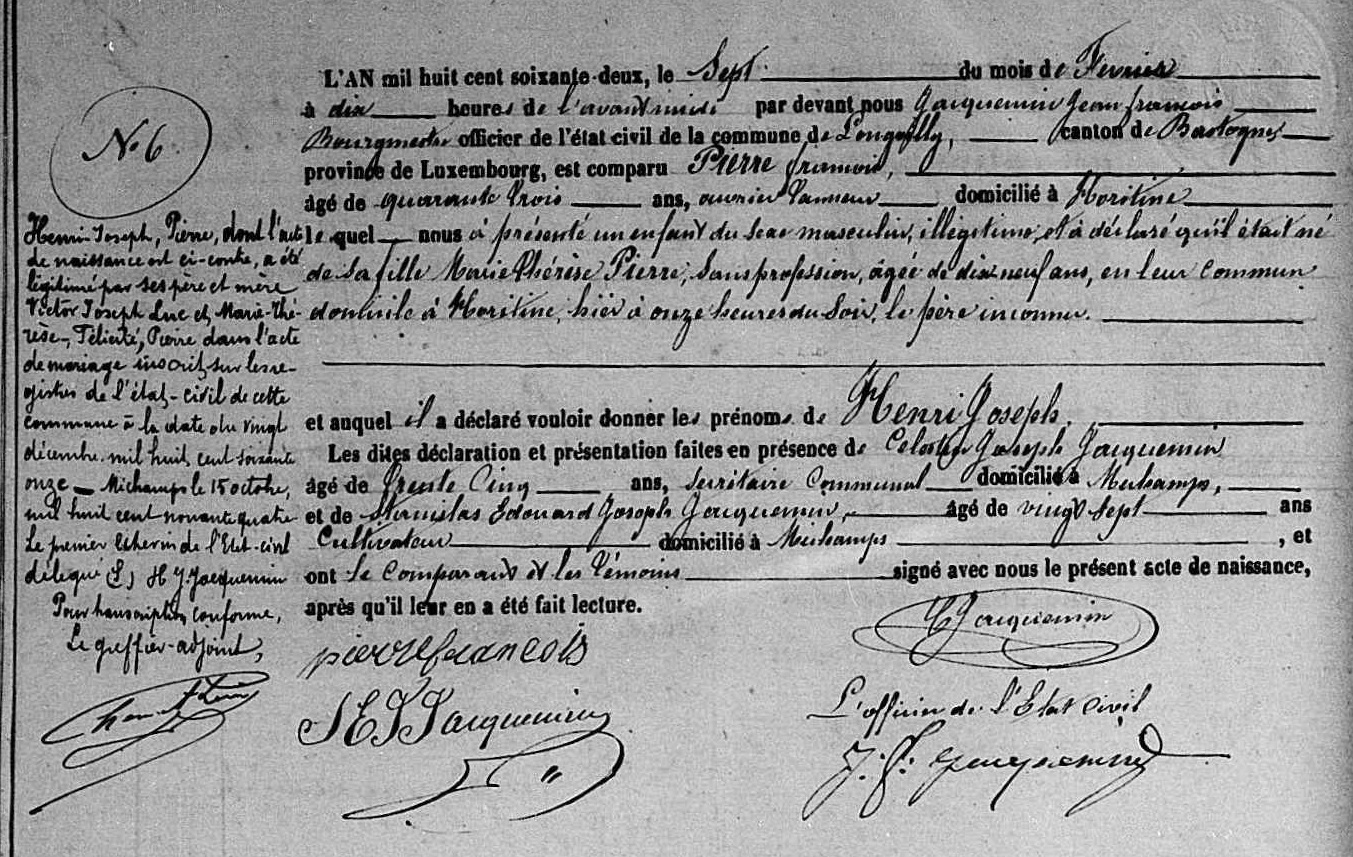 N.o 6
Henri Joseph, Pierre, dont l'acte
de naissance est ci-contre, a été
légitimé par ses père et mère
Victor Joseph Luc et Marie-Thé-
rèse-, Félicité, Pierre dans l'acte
de mariage inscrit sur les re-
gistres de l'état-civil de cette
commune à la date du vingt
décembre mil huit cent soixante
onze — Michamps le 15 octobre,
mil huit cent nonante quatre
Le premier Echevin de l'Etat-civil
délégué (s) H J Jacquemin
Pour transcription conforme,
Le greffier-adjoint,
L'AN mil huit cent soixante-deux, le Sept du mois de Fevrier
à dix heures de l'avant midi par devant nous Jacquemin Jean françois
Bourgmestre officier de l'état civil de la commune de Longvilly, canton de Bastogne,
province de Luxembourg, est comparu Pierre francois,
âgé de quarante trois ans, ouvrier tanneur domicilié à Horitine
le quel nous à présenté un enfant du sexe masculin, illégitime, et à déclaré qu'il était né
de sa fille Marie Thérèse Pierre, sans profession, âgée de dix neuf ans, en leur commun
domicile à Horitine, hier à onze heures du soir, le père inconnu.
et auquel il a déclaré vouloir donner les prénoms de Henri Joseph.
Les dites déclaration et présentation faites en présence de Celestin Joseph Jacquemin
âgé de trente Cinq ans, secrétaire Communal domicilié à Michamps,
et de Stanislas Edouard Joseph Jacquemin, âgé de vingt sept ans
Cultivateur domicilié à Michamps , et
ont le Comparant et les témoins signé avec nous le présent acte de naissance,
après qu'il leur en a été fait lecture.
pierre francois
C J Jacquemin
S E J Jacquemin
L'officier de l'Etat civil
J. F. Jacquemin